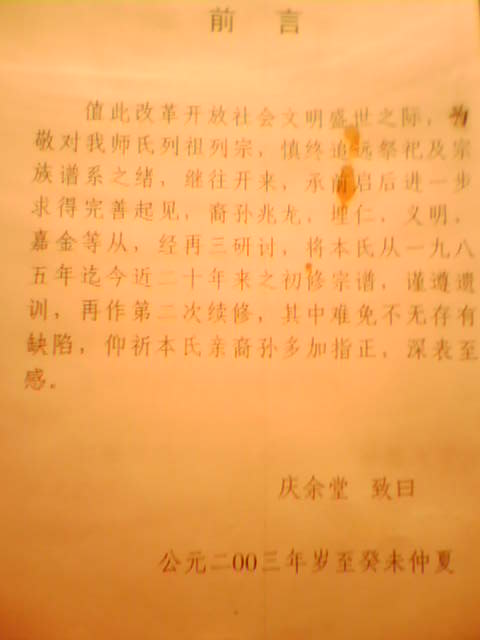 前 言
值此改革开放社会文明盛世之际，为
敬对我师氏列祖列宗，慎终追远祭祀及宗
族谱系之绪，继往开来，承前启后进一步
求得完善起见，裔孙兆龙，埋仁，义明，
嘉金等从，经再三研讨，将本氏从一九八
五年迄今近二十年来之初修宗谱，谨遵遗
训，再作第二次续修，其中难免不无存有
缺陷，仰祈本氏亲裔孙多加指正，深表至
感。
庆余堂 致曰
公元二00三年岁至癸未仲夏